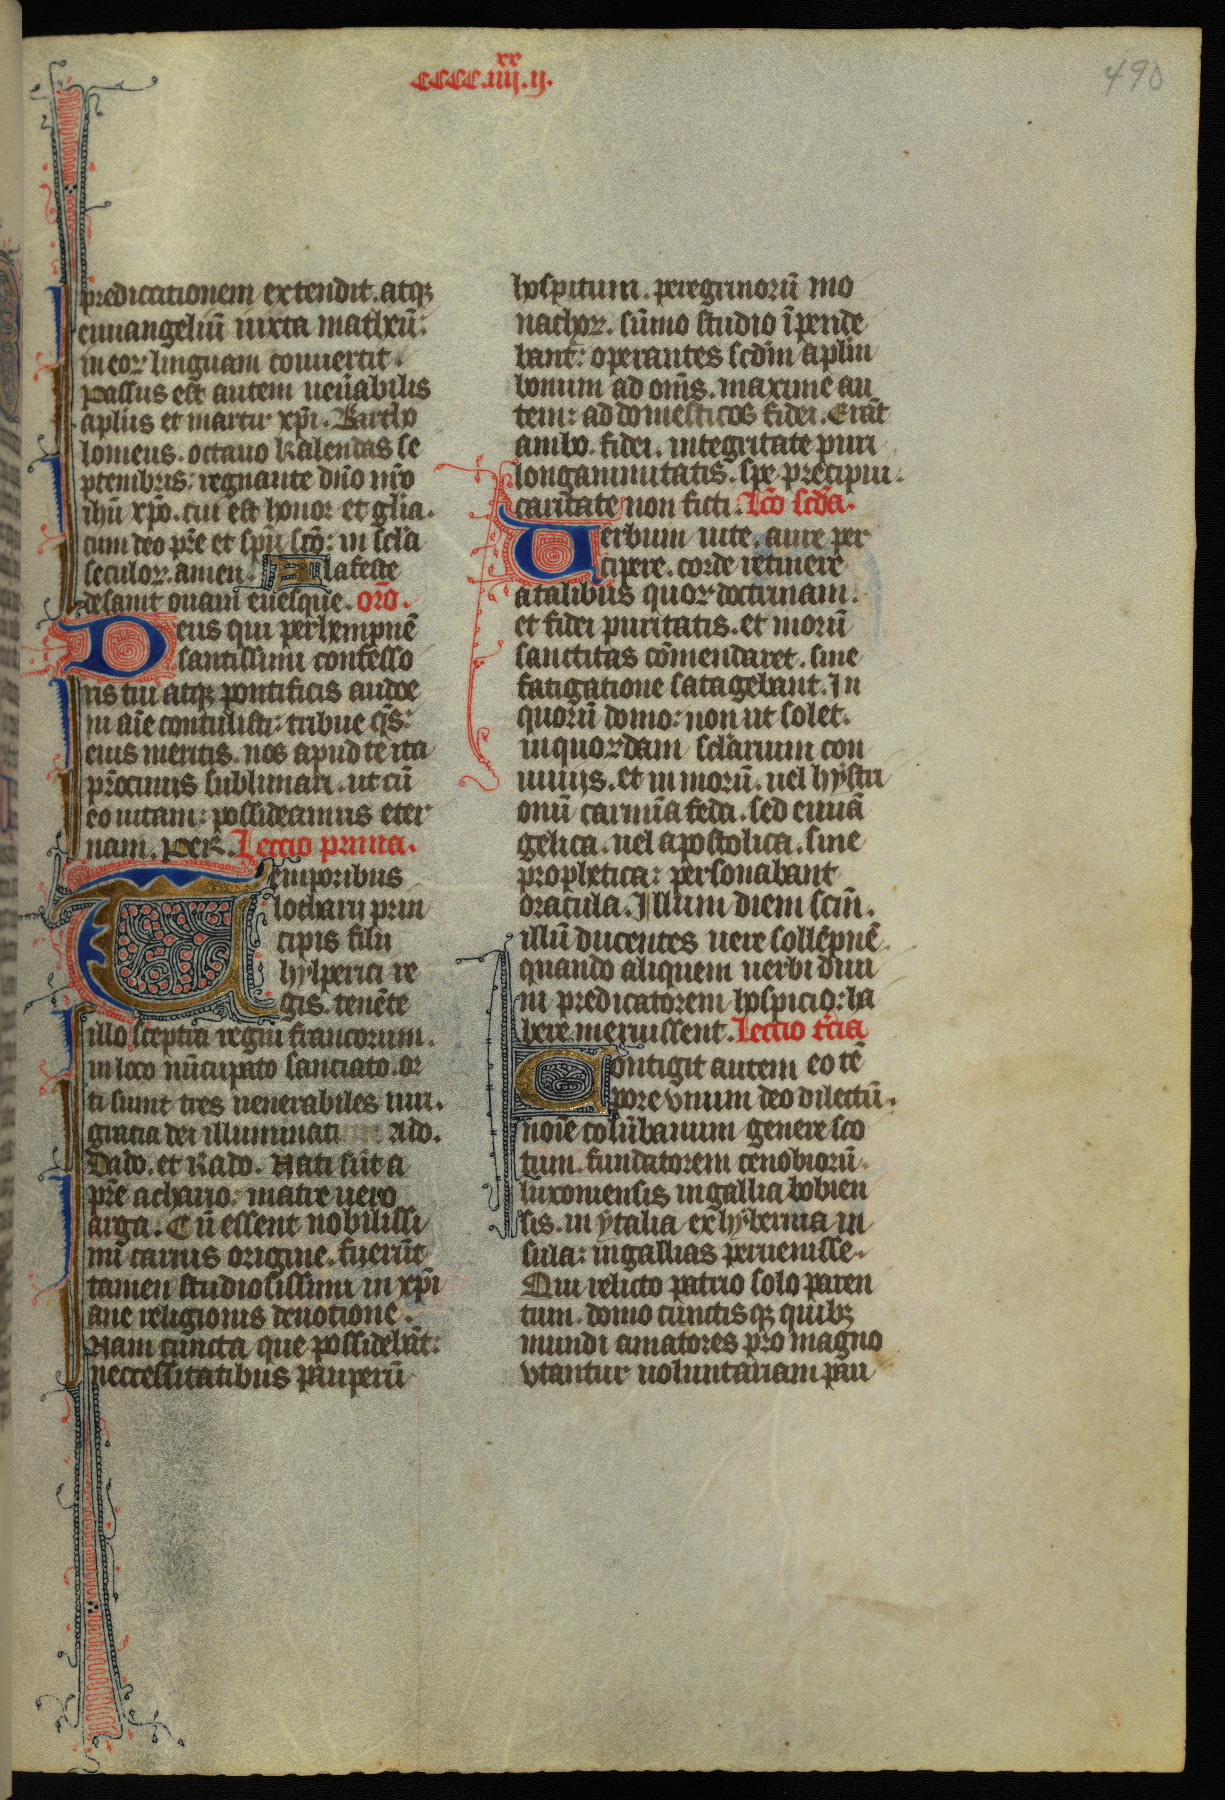 xx
CCCC.iiij.ij.
490
predicationem extendit. atqꝫ
euuangeliū iuxta matheū:
in eoꝝ linguam conuertit.
Passus est autem uen̄abilis
apl̄us et martir xp̄i. Bartho
lomeus. octauo kalendas se
ptembris: regnante dn̄o nr̄o
ihū xp̄o. cui est honor et gl̄ia.
cum deo pr̄e et spū scō: in scl̄a
seculoꝝ. amen. A la feste
de saint ouain euesque. orō.
Deus qui perhempnē
santissimi confesso
ris tui atqꝫ pontificis audoe
ni aīe contulisti: tribue q̄s:
eius meritis. nos apud te ita
pr̄ocinus sublimari. ut cū
eo uitam: possideamus eter
nam. Per. Leccio prima.
Temporibus
lotharij prin
cipis filii
hylperici re
gis. tenēte
illo sceptra regni francorum.
in loco nūcupato sanciato. or
ti sunt tres uenerabiles uiri.
gratia dei illuminati Ado.
Dado. et Rado. Nati sūt a
pr̄e achario: matre uero
aiga. Cū essent nobilissi
mi carnis origine. fuerūt
tamen studiosissimi in xp̄i
ane religionis deuotione.
Nam cuncta que possidebāt:
neccessitatibus pauperū
hospitum. peregrinorū mo
nachoꝝ. sūmo studio īpende
bant: operantes scd̄m aplm̄
bonum ad om̄s. maxime au
tem: ad domesticos fidei. Erāt
ambo. fidei. integritate puri
longanimitatis. spe precipui.
caritate non ficti. Lc̄o scd̄a.
Uerbum uite. aure per
cipere. corde retinere
a talibus quoꝝ doctrinam.
et fidei puritatis. et morū
sanctitas cōmendaret. sine
fatigatione satagebant. In
quorū domo: non ut solet.
in quorꝝdam scl̄arium con
uiuijs. et mimorū. uel hystri
onū carmīa feda. sed euuā
gelica. uel apostolica. siue
prophetica: personabant
oracula. Illum diem scīm.
illū ducentes uere sollēpnē.
quando aliquem uerbi diui
ni predicatorem hospicio: ha
bere meruissent. Lectio tc̄ia
Contigit autem eo tē
pore vnum deo dilectū.
noīe colūbanum genere sco
tum. fundatorem cenobiorū.
luxoniensis in gallia bobien
sis. in ytalia ex hybernia in
sula: in gallias peruenisse.
Qui relicto patrio solo paren
tum. domo cunctisqꝫ quibꝫ
mundi amatores pro magno
vtantur uoluntariam pau